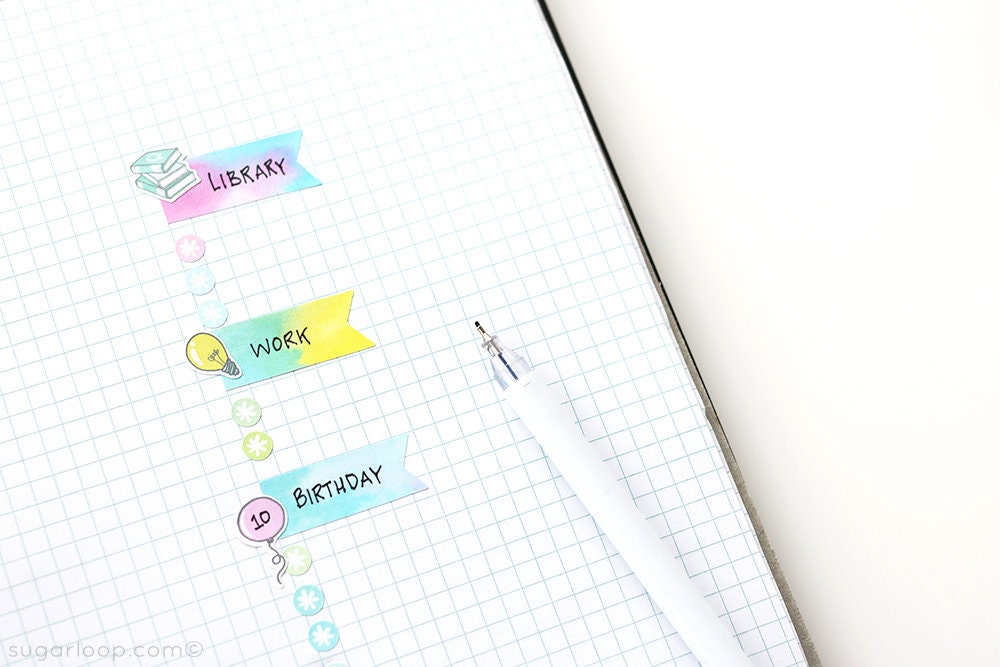 LIBRARY
WORK
BIRTHDAY
10
sugarloop.com©